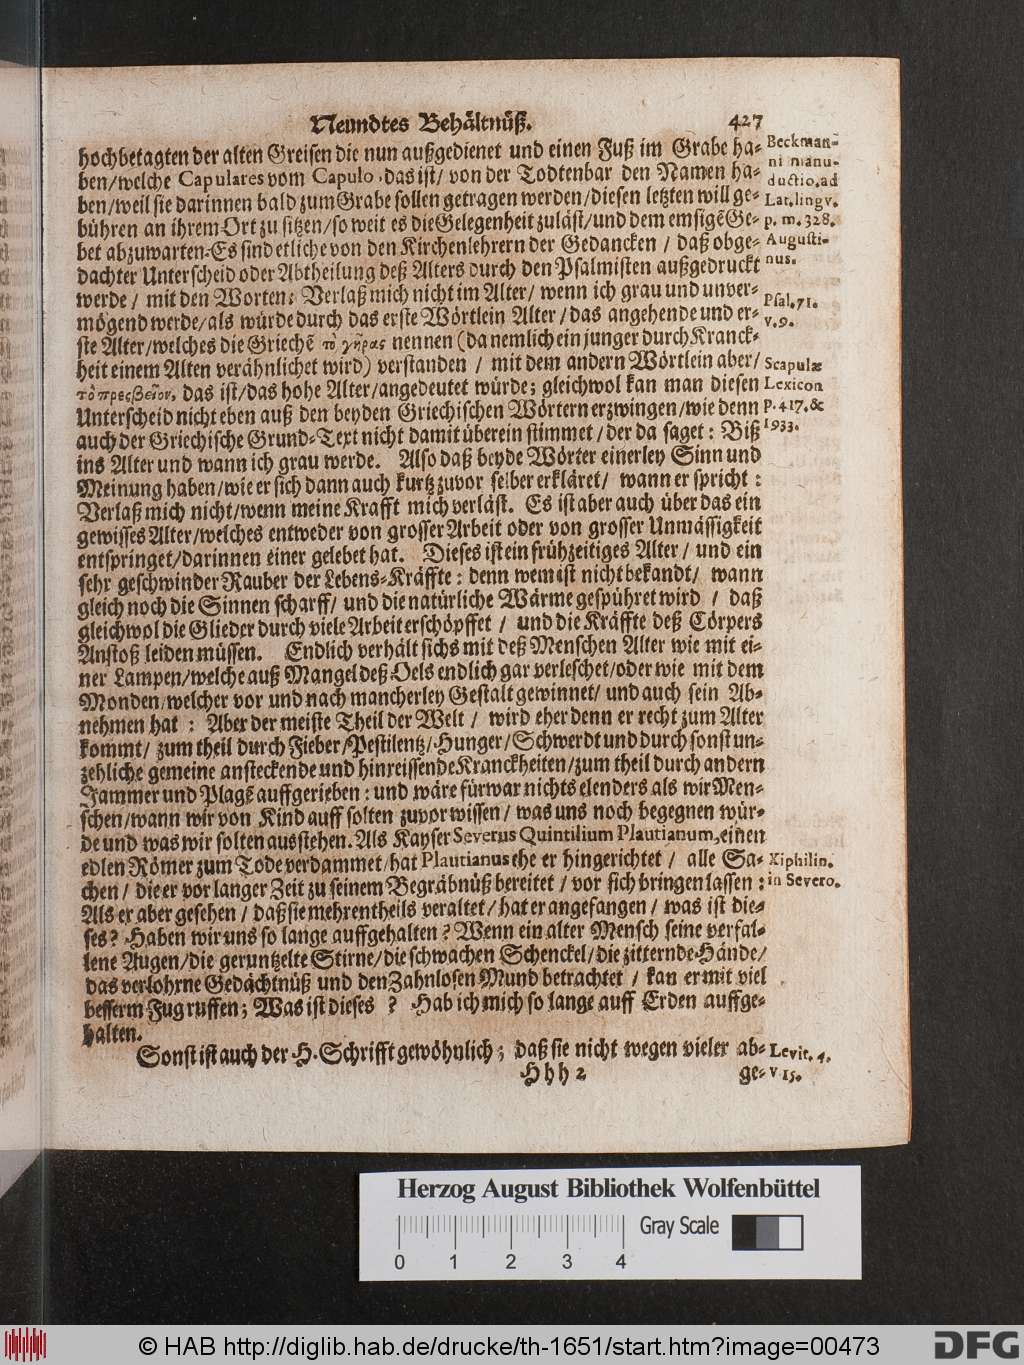 Neundtes Behältnüß. 427
hochbetagten der alten Greisen die nun außgedienet und einen Fuß im Grabe ha-
ben/welche Capulares vom Capulo, das ist/ von der Todtenbar den Namen ha-
ben/weil sie darinnen bald zum Grabe sollen getragen werden/diesen letzten will ge-
bühren an ihrem Ort zu sitzen/so weit es die Gelegenheit zuläst/und dem emsigẽ Ge-
bet abzuwarten. Es sind etliche von den Kirchenlehrern der Gedancken / daß obge-
dachter Unterscheid oder Abtheilung deß Alters durch den Psalmisten außgedruckt
werde / mit den Worten: Verlaß mich nicht im Alter/ wenn ich grau und unver-
mögend werde/als würde durch das erste Wörtlein Alter/das angehende und er-
ste Alter/welches die Griechẽ τὸ γῆρας nennen (da nemlich ein junger durch Kranck-
heit einem Alten verähnlichet wird) verstanden / mit dem andern Wörtlein aber/
τὸ πρεσβεῖον, das ist/das hohe Alter/angedeutet würde; gleichwol kan man diesen
Unterscheid nicht eben auß den beyden Griechischen Wörtern erzwingen/wie denn
auch der Griechische Grund-Text nicht damit überein stimmet/der da saget: Biß
ins Alter und wann ich grau werde. Also daß beyde Wörter einerley Sinn und
Meinung haben/wie er sich dann auch kurtz zuvor selber erkläret/ wann er spricht:
Verlaß mich nicht/wenn meine Krafft mich verläst. Es ist aber auch über das ein
gewisses Alter/welches entweder von grosser Arbeit oder von grosser Unmässigkeit
entspringet/darinnen einer gelebet hat. Dieses ist ein frühzeitiges Alter/ und ein
sehr geschwinder Rauber der Lebens-Kräffte: denn wem ist nicht bekandt/ wann
gleich noch die Sinnen scharff/ und die natürliche Wärme gespühret wird / daß
gleichwol die Glieder durch viele Arbeit erschöpffet / und die Kräffte deß Cörpers
Anstoß leiden müssen. Endlich verhält sichs mit deß Menschen Alter wie mit ei-
ner Lampen/welche auß Mangel deß Oels endlich gar verleschet/oder wie mit dem
Monden/welcher vor und nach mancherley Gestalt gewinnet/ und auch sein Ab-
nehmen hat: Aber der meiste Theil der Welt / wird eher denn er recht zum Alter
kommt/ zum theil durch Fieber/Pestilentz/Hunger/Schwerdt und durch sonst un-
zehliche gemeine ansteckende und hinreissende Kranckheiten/zum theil durch andern
Jammer und Plagẽ auffgerieben: und wäre fürwar nichts elenders als wir Men-
schen/wann wir von Kind auff solten zuvor wissen/ was uns noch begegnen wür-
de und was wir solten ausstehen. Als Kayser Severus Quintilium Plautianum, einen
edlen Römer zum Tode verdammet/hat Plautianus ehe er hingerichtet / alle Sa-
chen / die er vor langer Zeit zu seinem Begräbnüß bereitet / vor sich bringen lassen:
Als er aber gesehen / daß sie mehrentheils veraltet/hat er angefangen / was ist die-
ses? Haben wir uns so lange auffgehalten? Wenn ein alter Mensch seine verfal-
lene Augen/die geruntzelte Stirne/die schwachen Schenckel/die zitternde Hände/
das verlohrne Gedächtnüß und den Zahnlosen Mund betrachtet / kan er mit viel
besserm Fug ruffen; Was ist dieses ? Hab ich mich so lange auff Erden auffge-
halten.
Sonst ist auch der H. Schrifft gewöhnlich; daß sie nicht wegen vieler ab-
Hhh 2 ge-
Beckman-
ni manu-
ductio. ad
Lat. lingv.
p. m. 328.
Augusti-
nus.
Psal. 71.
v. 9.
Scapulæ
Lexicon
p. 417. &
1933.
Xiphilin.
in Severo.
Levit. 4.
v 15.
Herzog August Bibliothek Wolfenbüttel
Gray Scale
0 1 2 3 4
© HAB http://diglib.hab.de/drucke/th-1651/start.htm?image=00473
DFG